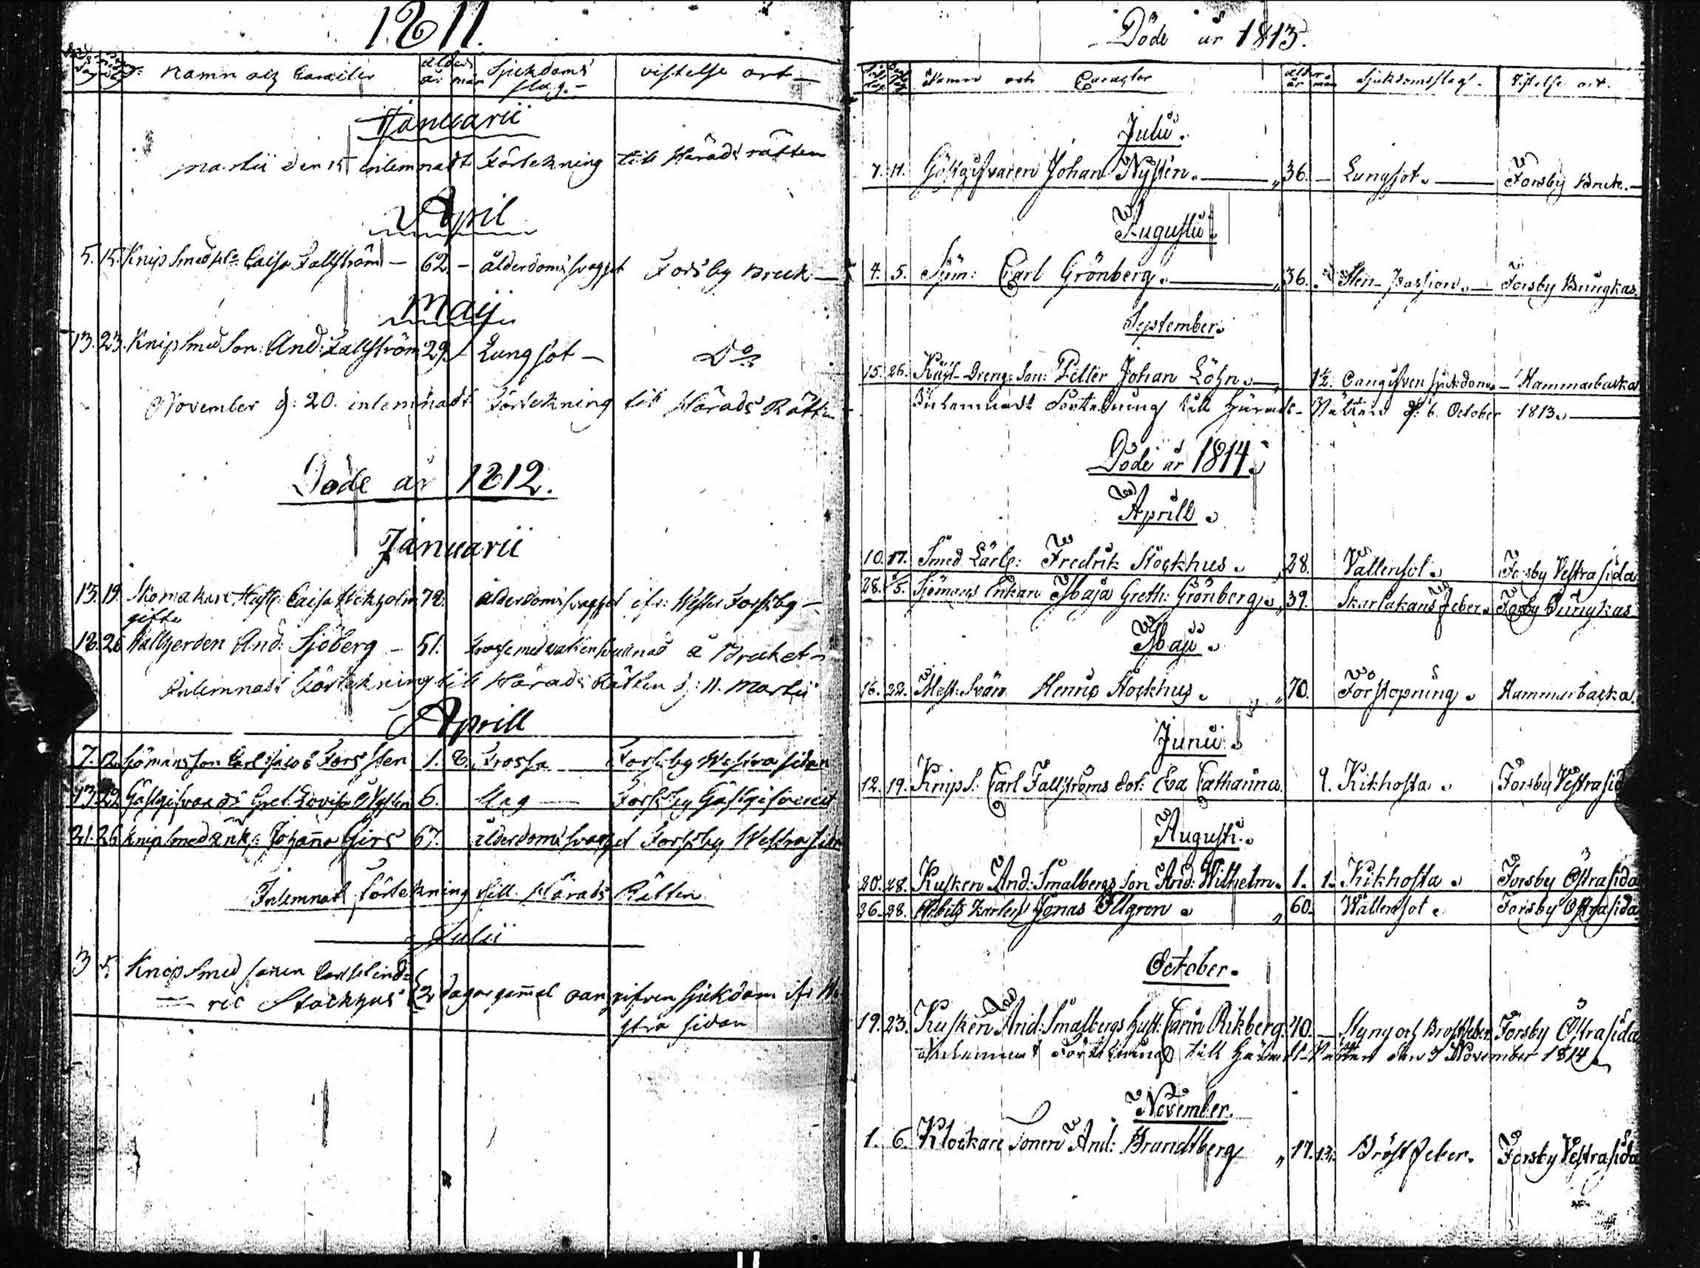 1811.
Namn och Caracter ålder år mån Sjukdoms slag. vistelse ort
Januarii
Martii den 15 inlemnadt Förtekning till Härads rätten
April
5. 15. Knipsmeds Caisa Fallström 62 ålderdoms svaghet Forsby Bruk
Maij
13. 23. Knipsmed Son And: Fallström 29 Lungsot Do
November d: 20. inlemnadt Förtekning till Härads Rätten
Döde år 1812.
Januarii
13. 19 Hust: Caisa 72 ålderdoms svaghet Forsby
gifte
18. 26 Vallgerden And: Sjöberg 51. å Bruket
Inlemnadt Förtekning till Härads Rätten d: 11. Martii
Aprill
7. 12. son Carl Jacob Forssten 1. 8. Frossa Forsby Westra sidan
22 Gästgifvare Gret Lovisa Nysten 6. Slag Forsby Gästgifveriet
21. 26 Knipsmed änk: Johanna Girs 67. ålderdoms svaghet Forsby Westra sidan
Inlemnat Förtekning till Härads Rätten
Julii
3 5. Knipsmed sonen Carl
ric Stockhus 2 dagar gammal oangifven sjukdom
stra sidan
Döde år 1813.
Namn och Caracter ålder år mån Sjukdomsslag. Vistelse ort.
Julii.
7. 11. Gästgifvaren Johan Nystén. 36. Lungsot. Forsby Bruk.
Augustii
4. 5. Carl Grönberg. 36. Sten Passion. Forsby Bungkas.
September.
15. 26. Dreng: Son: Petter Johan Löhn. 1½. Oangifven sjukdom. Hammarbacka
Inlemnadt Förtekning till Härads-Rätten d: 6. October 1813.
Döde år 1814.
Aprill.
10. 17. Smed Lärl: Fredrik Stockhus. 28. Vattensot. Forsby Vestra sida
28. 5. Sjömans Enkan Maja Greth: Grönberg. 39. Skarlakans Feber. Forsby Bungkas
Maji.
16. 22. Mest: Sven Henric Stockhus. 70. Förstopning. Hammarbacka.
Junii.
12. 19. Knips: Carl Fallströms dot: Eva Catharina. 9. Kikhosta. Forsby Vestra sid
Augusti.
20. 28. Kusken And: Smalbergs Son And: Wilhelm. 1. 1. Kikhosta. Forsby Östra sida
26. 28. Arbets Karlen Jonas Ellgren. 60. Wattensot. Forsby Östra sida
October.
19. 23. Kusken And: Smalbergs Hust: Carin Rikberg. 40. Styng och Bröstfeber. Forsby Östra sida
Inlemnadt Förtekning till Härads-Rätten den 7 November 1814.
November.
1. 6. Klockare Sonen And: Brandtberg 17. Bröst Feber. Forsby Vestra sida